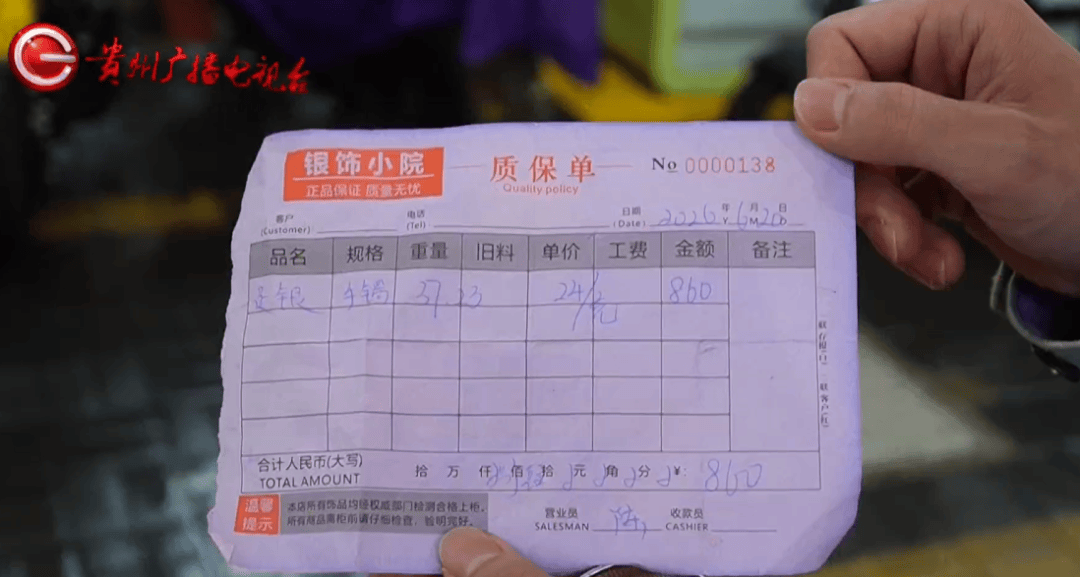 贵州广播电视台
银饰小院
正品保证 质量无忧
质保单
Quality policy
No 0000138
客户
(Customer)
电话
(Tel)
日期
(Date) 2026年Y 6月M 20日D
品名 规格 重量 旧料 单价 工费 金额 备注
足银 手镯 37.23 24/元 860
合计人民币(大写)
TOTAL AMOUNT
拾 万 仟 佰 拾 元 角 分 ¥: 860
温馨提示
本店所有饰品均经权威部门检测合格上柜。
所有商品离柜前请仔细检查，验明完好。
营业员
SALESMAN
收款员
CASHIER